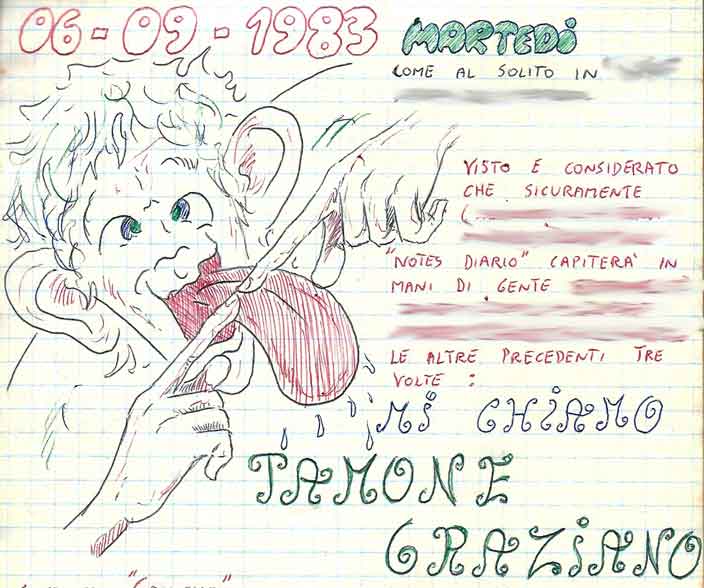 06-09-1983 MARTEDì
COME AL SOLITO IN
VISTO E CONSIDERATO
CHE SICURAMENTE
(
"NOTES DIARIO" CAPITERA' IN
MANI DI GENTE
LE ALTRE PRECEDENTI TRE
VOLTE :
Mi CHiAMO
TAMONE
GRAZiANO